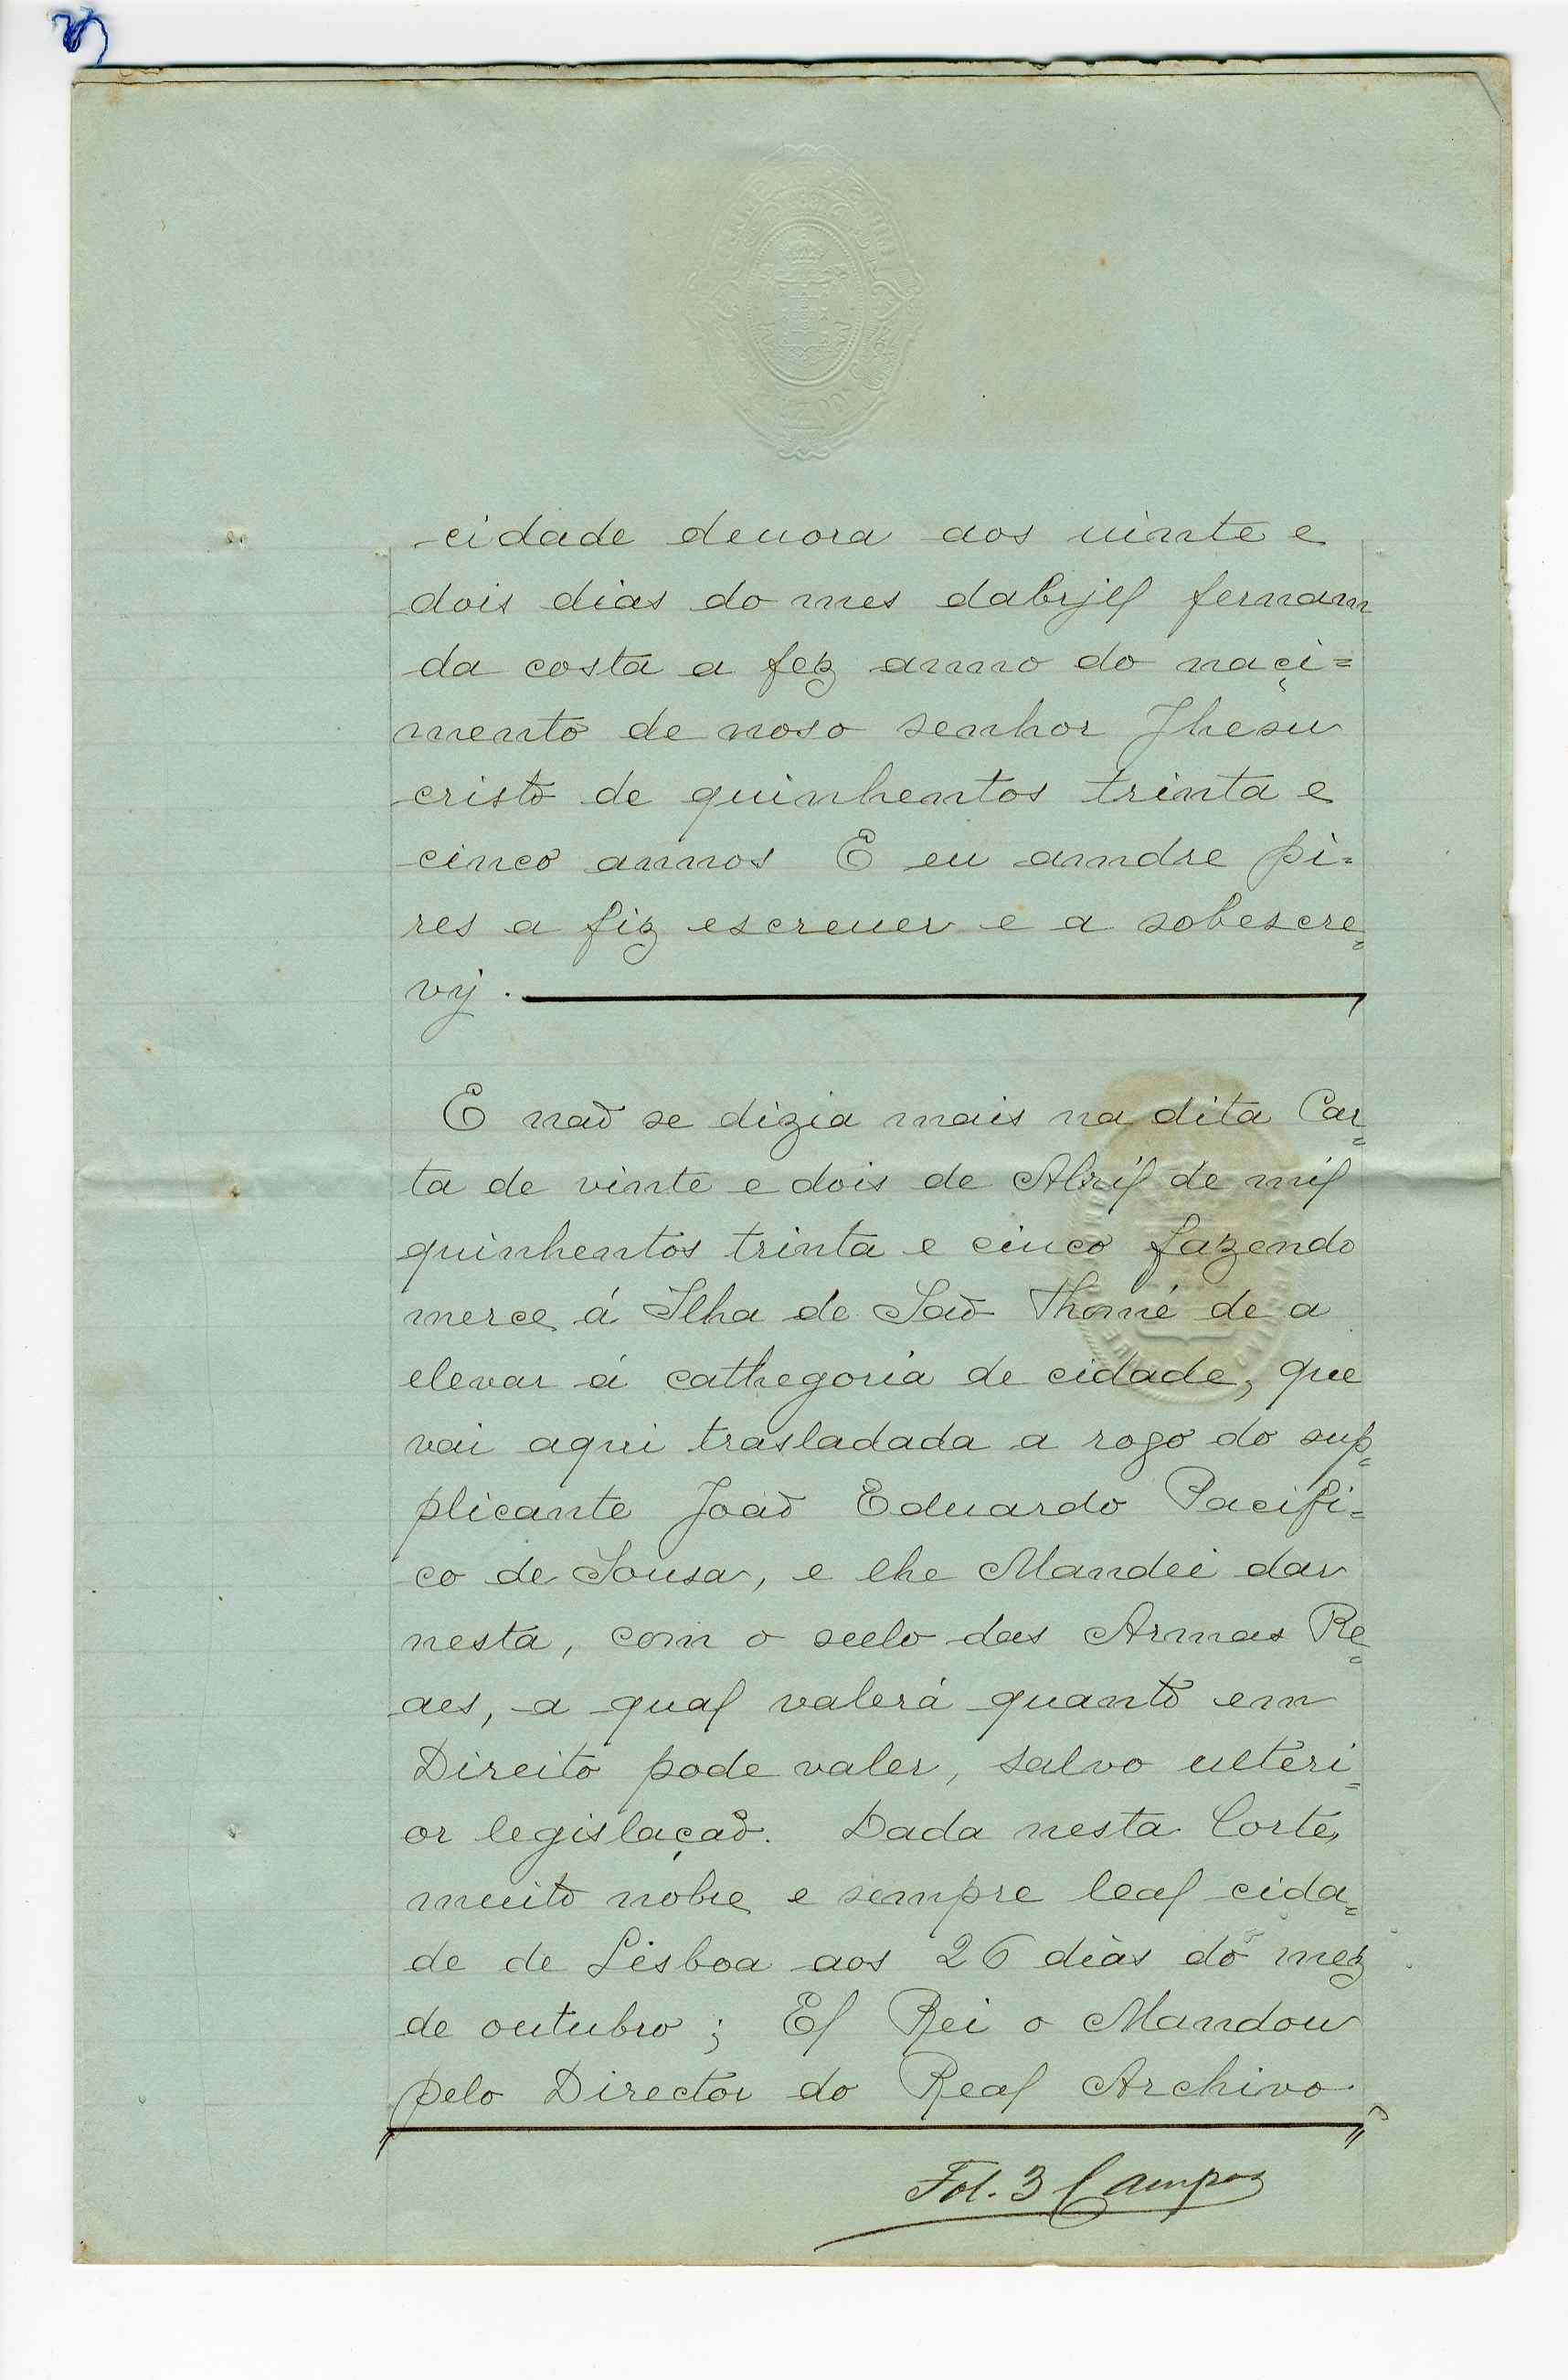 cidade deuora aos uinte e
dois dias do mes dabrjl fernam
da costa a fez anno do naçi=
mento de noso senhor Jhesu
cristo de quinhentos trinta e
cinco annos E eu amdre pi=
res a fiz escreuer e a sobescre=
vy.
E naõ se dizia mais na dita Car=
ta de vinte e dois de Abril de mil
quinhentos trinta e cinco fazendo
merce á Ilha de Saõ Thomé de a
elevar á cathegoria de cidade, que
vai aqui trasladada a rogo do sup=
plicante Joaõ Eduardo Pacifi=
co de Sousa, e lhe Mandei dar
nesta, com o sello das Armas Re=
aes, a qual valerá quanto em
Direito pode valer, salvo ulteri=
or legislaçaõ. Dada nesta Corte,
muito nobre e sempre leal cida=
de de Lisboa aos 26 dias do mez
de outubro; El Rei o Mandou
pelo Director do Real Archivo
Fol. 3 Campos